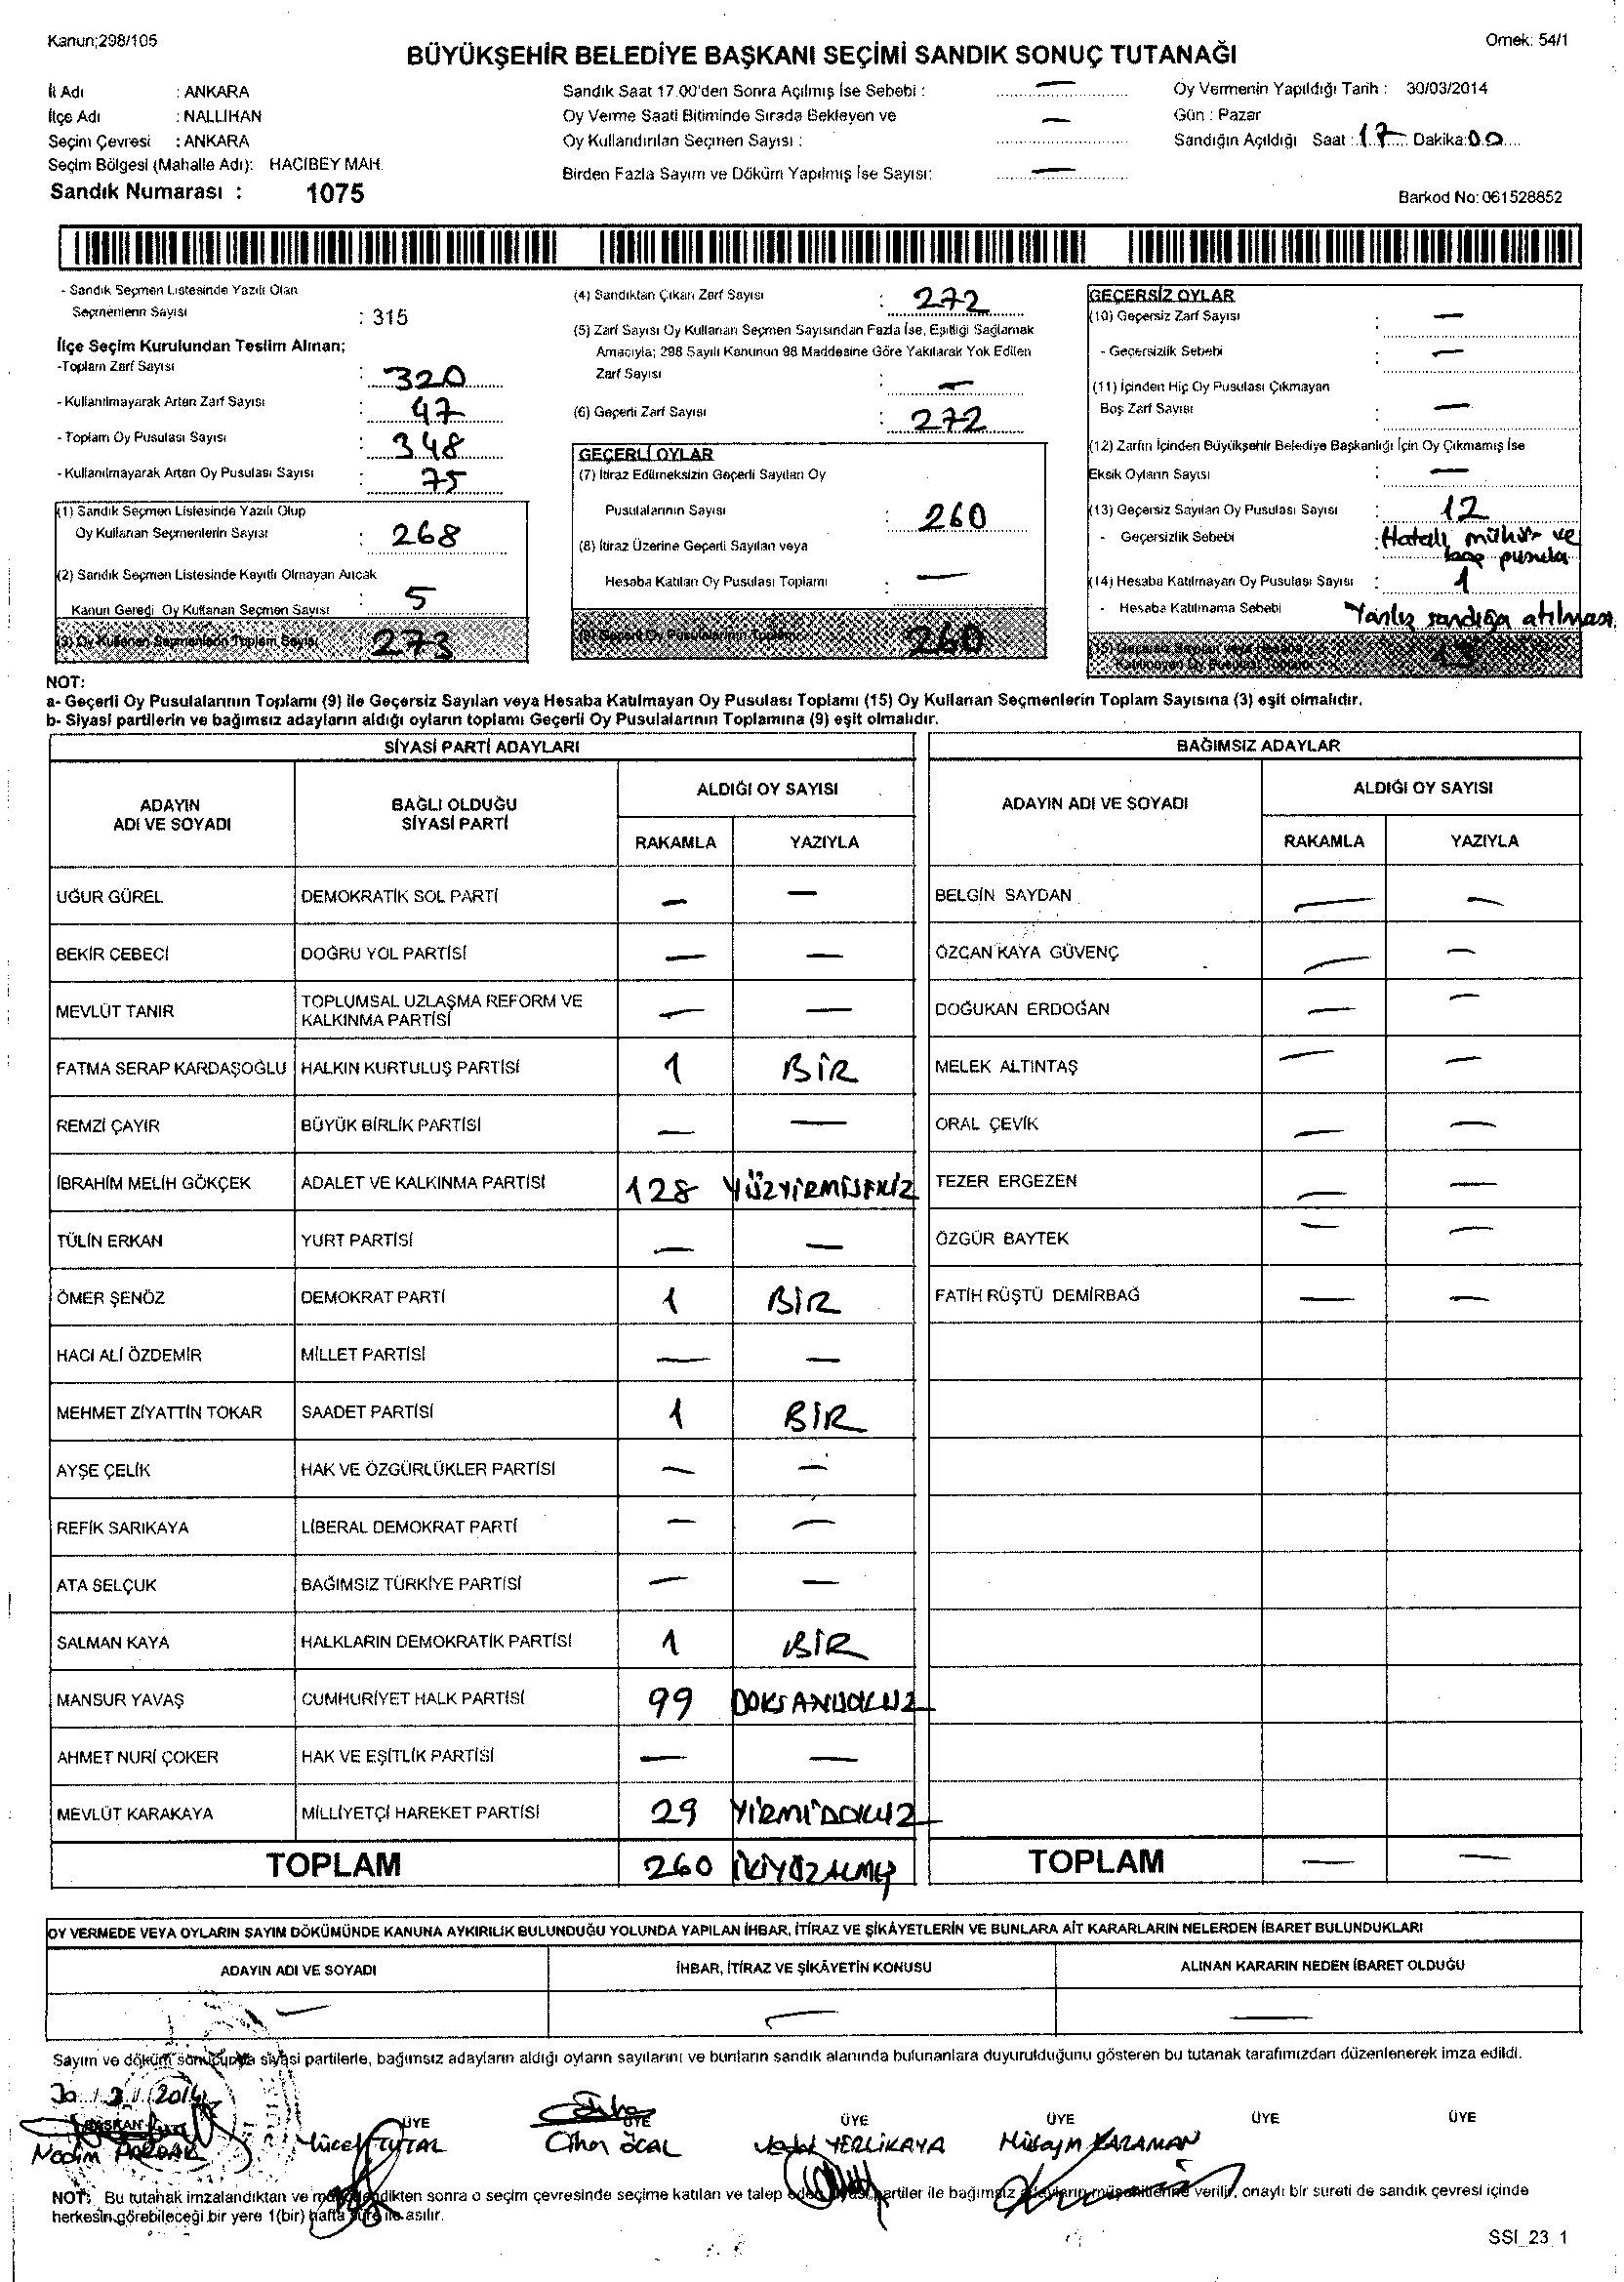 Kanun;298/105
Örnek: 54/1
BÜYÜKŞEHİR BELEDİYE BAŞKANI SEÇİMİ SANDIK SONUÇ TUTANAĞI
İl Adı : ANKARA
İlçe Adı : NALLIHAN
Seçim Çevresi : ANKARA
Seçim Bölgesi (Mahalle Adı): HACIBEY MAH.
Sandık Numarası : 1075
Sandık Saat 17.00'den Sonra Açılmış İse Sebebi : —
Oy Verme Saati Bitiminde Sırada Bekleyen ve —
Oy Kullandırılan Seçmen Sayısı :
Birden Fazla Sayım ve Döküm Yapılmış İse Sayısı: —
Oy Vermenin Yapıldığı Tarih : 30/03/2014
Gün : Pazar
Sandığın Açıldığı Saat : 17 Dakika: 00
Barkod No: 061528852
- Sandık Seçmen Listesinde Yazılı Olan
Seçmenlerin Sayısı : 315
İlçe Seçim Kurulundan Teslim Alınan;
-Toplam Zarf Sayısı : 320
- Kullanılmayarak Artan Zarf Sayısı : 47
- Toplam Oy Pusulası Sayısı : 348
- Kullanılmayarak Artan Oy Pusulası Sayısı : 75
(1) Sandık Seçmen Listesinde Yazılı Olup
Oy Kullanan Seçmenlerin Sayısı : 268
(2) Sandık Seçmen Listesinde Kayıtlı Olmayan Ancak
Kanun Gereği Oy Kullanan Seçmen Sayısı : 5
(3) Oy Kullanan Seçmenlerin Toplam Sayısı 273
(4) Sandıktan Çıkan Zarf Sayısı : 272
(5) Zarf Sayısı Oy Kullanan Seçmen Sayısından Fazla İse, Eşitliği Sağlamak
Amacıyla; 298 Sayılı Kanunun 98 Maddesine Göre Yakılarak Yok Edilen
Zarf Sayısı : —
(6) Geçerli Zarf Sayısı : 272
GEÇERLİ OYLAR
(7) İtiraz Edilmeksizin Geçerli Sayılan Oy
Pusulalarının Sayısı : 260
(8) İtiraz Üzerine Geçerli Sayılan veya
Hesaba Katılan Oy Pusulası Toplamı : —
(9) Geçerli Oy Pusulalarının Toplamı 260
GEÇERSİZ OYLAR
(10) Geçersiz Zarf Sayısı : —
- Geçersizlik Sebebi : —
(11) İçinden Hiç Oy Pusulası Çıkmayan
Boş Zarf Sayısı : —
(12) Zarfın İçinden Büyükşehir Belediye Başkanlığı İçin Oy Çıkmamış İse
Eksik Oyların Sayısı : —
(13) Geçersiz Sayılan Oy Pusulası Sayısı : 12
- Geçersizlik Sebebi : Hatalı mühür ve
pusula
(14) Hesaba Katılmayan Oy Pusulası Sayısı : 1
- Hesaba Katılmama Sebebi Yanlış sandığa atılması.
(15) Geçersiz Sayılan veya Hesaba
Katılmayan Oy Pusulası Toplamı 13
NOT:
a- Geçerli Oy Pusulalarının Toplamı (9) ile Geçersiz Sayılan veya Hesaba Katılmayan Oy Pusulası Toplamı (15) Oy Kullanan Seçmenlerin Toplam Sayısına (3) eşit olmalıdır.
b- Siyasi partilerin ve bağımsız adayların aldığı oyların toplamı Geçerli Oy Pusulalarının Toplamına (9) eşit olmalıdır.
SİYASİ PARTİ ADAYLARI
ADAYIN ADI VE SOYADI
BAĞLI OLDUĞU SİYASİ PARTİ
ALDIĞI OY SAYISI
RAKAMLA YAZIYLA
UĞUR GÜREL DEMOKRATİK SOL PARTİ — —
BEKİR CEBECİ DOĞRU YOL PARTİSİ — —
MEVLÜT TANIR TOPLUMSAL UZLAŞMA REFORM VE
KALKINMA PARTİSİ — —
FATMA SERAP KARDAŞOĞLU HALKIN KURTULUŞ PARTİSİ 1 BİR
REMZİ ÇAYIR BÜYÜK BİRLİK PARTİSİ — —
İBRAHİM MELİH GÖKÇEK ADALET VE KALKINMA PARTİSİ 128 YÜZYİRMİSEKİZ
TÜLİN ERKAN YURT PARTİSİ — —
ÖMER ŞENÖZ DEMOKRAT PARTİ 1 BİR
HACI ALİ ÖZDEMİR MİLLET PARTİSİ — —
MEHMET ZİYATTİN TOKAR SAADET PARTİSİ 1 BİR
AYŞE ÇELİK HAK VE ÖZGÜRLÜKLER PARTİSİ — —
REFİK SARIKAYA LİBERAL DEMOKRAT PARTİ — —
ATA SELÇUK BAĞIMSIZ TÜRKİYE PARTİSİ — —
SALMAN KAYA HALKLARIN DEMOKRATİK PARTİSİ 1 BİR
MANSUR YAVAŞ CUMHURİYET HALK PARTİSİ 99 DOKSANDOKUZ
AHMET NURİ ÇOKER HAK VE EŞİTLİK PARTİSİ — —
MEVLÜT KARAKAYA MİLLİYETÇİ HAREKET PARTİSİ 29 YİRMİDOKUZ
TOPLAM 260 İKİYÜZALMIŞ
BAĞIMSIZ ADAYLAR
ADAYIN ADI VE SOYADI
ALDIĞI OY SAYISI
RAKAMLA YAZIYLA
BELGİN SAYDAN — —
ÖZCAN KAYA GÜVENÇ — —
DOĞUKAN ERDOĞAN — —
MELEK ALTINTAŞ — —
ORAL ÇEVİK — —
TEZER ERGEZEN — —
ÖZGÜR BAYTEK — —
FATİH RÜŞTÜ DEMİRBAĞ — —
TOPLAM — —
OY VERMEDE VEYA OYLARIN SAYIM DÖKÜMÜNDE KANUNA AYKIRILIK BULUNDUĞU YOLUNDA YAPILAN İHBAR, İTİRAZ VE ŞİKÂYETLERİN VE BUNLARA AİT KARARLARIN NELERDEN İBARET BULUNDUKLARI
ADAYIN ADI VE SOYADI İHBAR, İTİRAZ VE ŞİKÂYETİN KONUSU ALINAN KARARIN NEDEN İBARET OLDUĞU
— — —
Sayım ve döküm sonucunda siyasi partilerle, bağımsız adayların aldığı oyların sayılarını ve bunların sandık alanında bulunanlara duyurulduğunu gösteren bu tutanak tarafımızdan düzenlenerek imza edildi.
30/3/2014
BAŞKAN ÜYE ÜYE ÜYE ÜYE ÜYE ÜYE
Nedim Yücel TUTAL Cihan ÖCAL Vedat YERLİKAYA Hüseyin KARAMAN
NOT: Bu tutanak imzalandıktan ve mühürlendikten sonra o seçim çevresinde seçime katılan ve talep eden siyasi partiler ile bağımsız adayların müşahitlerine verilir, onaylı bir sureti de sandık çevresi içinde
herkesin görebileceği bir yere 1(bir) hafta süre ile asılır.
SSI_23_1